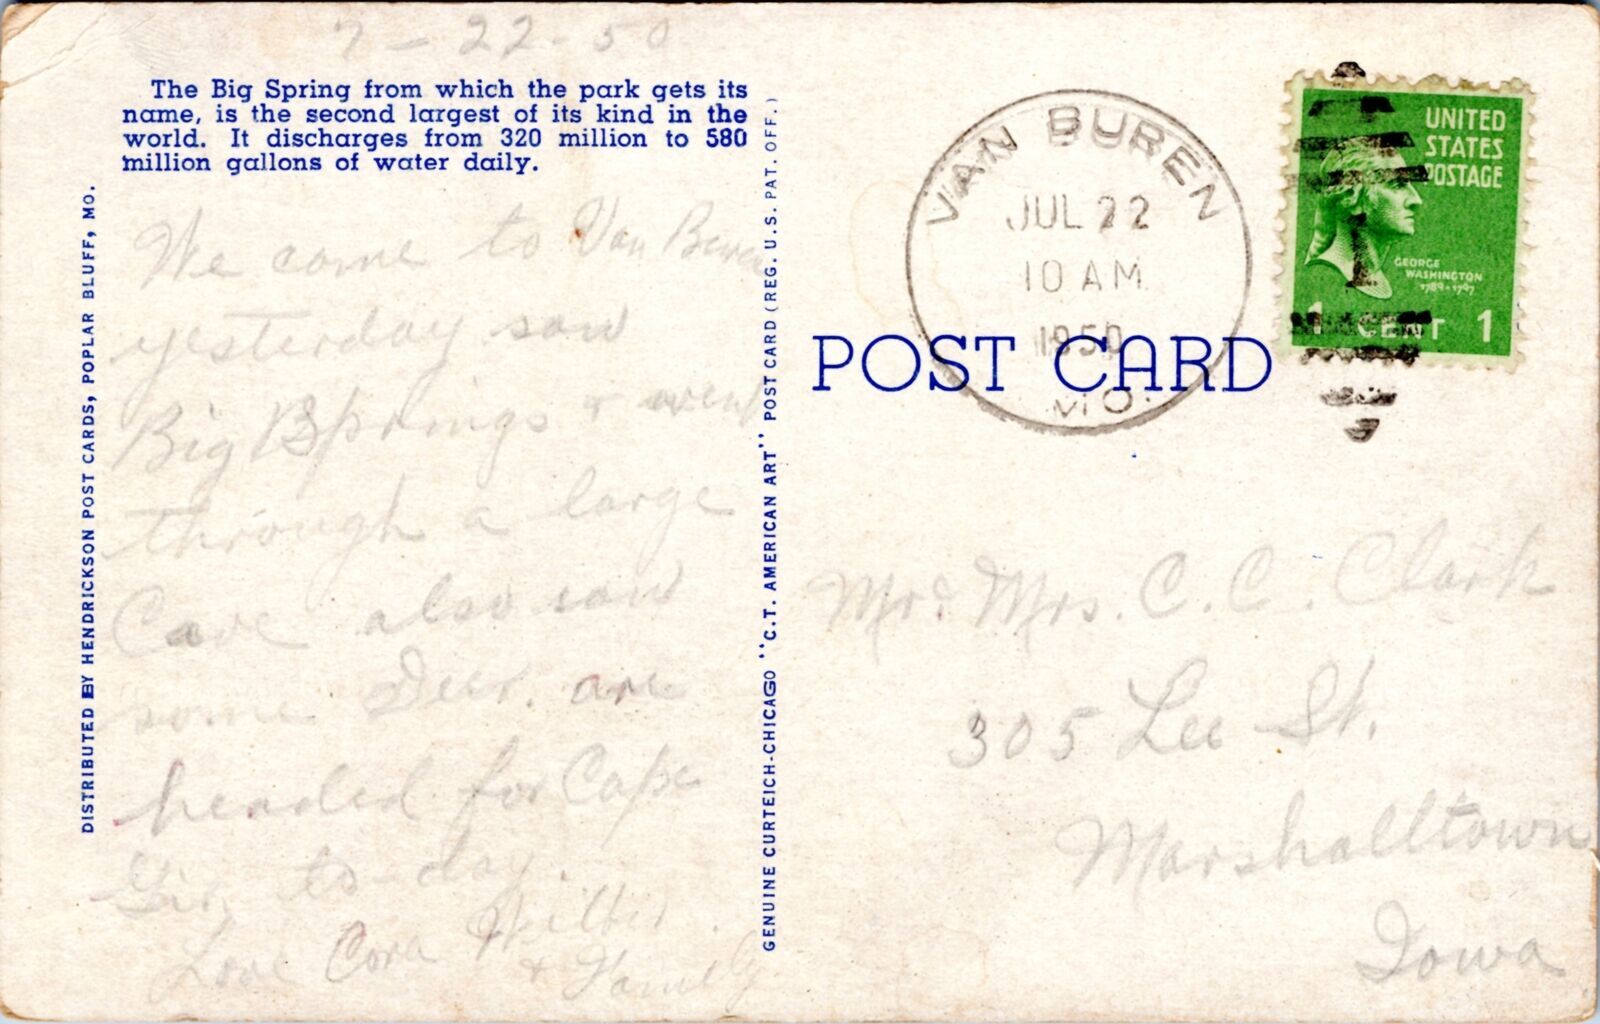 7-22-50
The Big Spring from which the park gets its
name, is the second largest of its kind in the
world. It discharges from 320 million to 580
million gallons of water daily.
We come to Van Buren
yesterday saw
Big Springs & went
through a large
Cave also saw
some Deer. are
headed for Cape
Gir, to-day.
Love Cora Wilber
& Family
DISTRIBUTED BY HENDRICKSON POST CARDS, POPLAR BLUFF, MO.
GENUINE CURTEICH-CHICAGO "C.T. AMERICAN ART" POST CARD (REG. U.S. PAT. OFF.)
VAN BUREN
JUL 22
10 AM
1950
MO.
POST CARD
UNITED
STATES
POSTAGE
GEORGE
WASHINGTON
1789-1797
1 CENT 1
Mr. Mrs. C. C. Clark
305 Lee St.
Marshalltown
Iowa